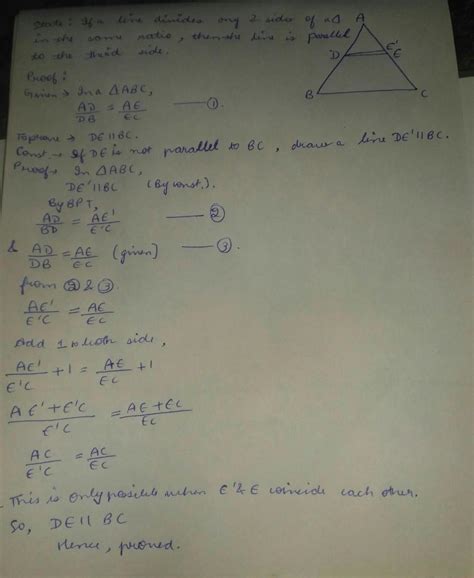 State: If a line divides any 2 sides of a Δ
in the same ratio, then the line is parallel
to the third side.
A
D
E'
E
B
C
Proof:
Given → In a ΔABC,
AD/DB = AE/EC —— ①.
To prove → DE||BC.
Const → If DE is not parallel to BC, draw a line DE'||BC.
Proof → In ΔABC,
DE'||BC (By const.).
By BPT,
AD/BD = AE'/E'C —— ②
& AD/DB = AE/EC (given) —— ③
from ② & ③.
AE'/E'C = AE/EC
Add 1 both side,
AE'/E'C + 1 = AE/EC + 1
AE'+E'C/E'C = AE+EC/EC
AC/E'C = AC/EC
This is only possible when E' & E coincide each other.
So, DE || BC
Hence, proved.